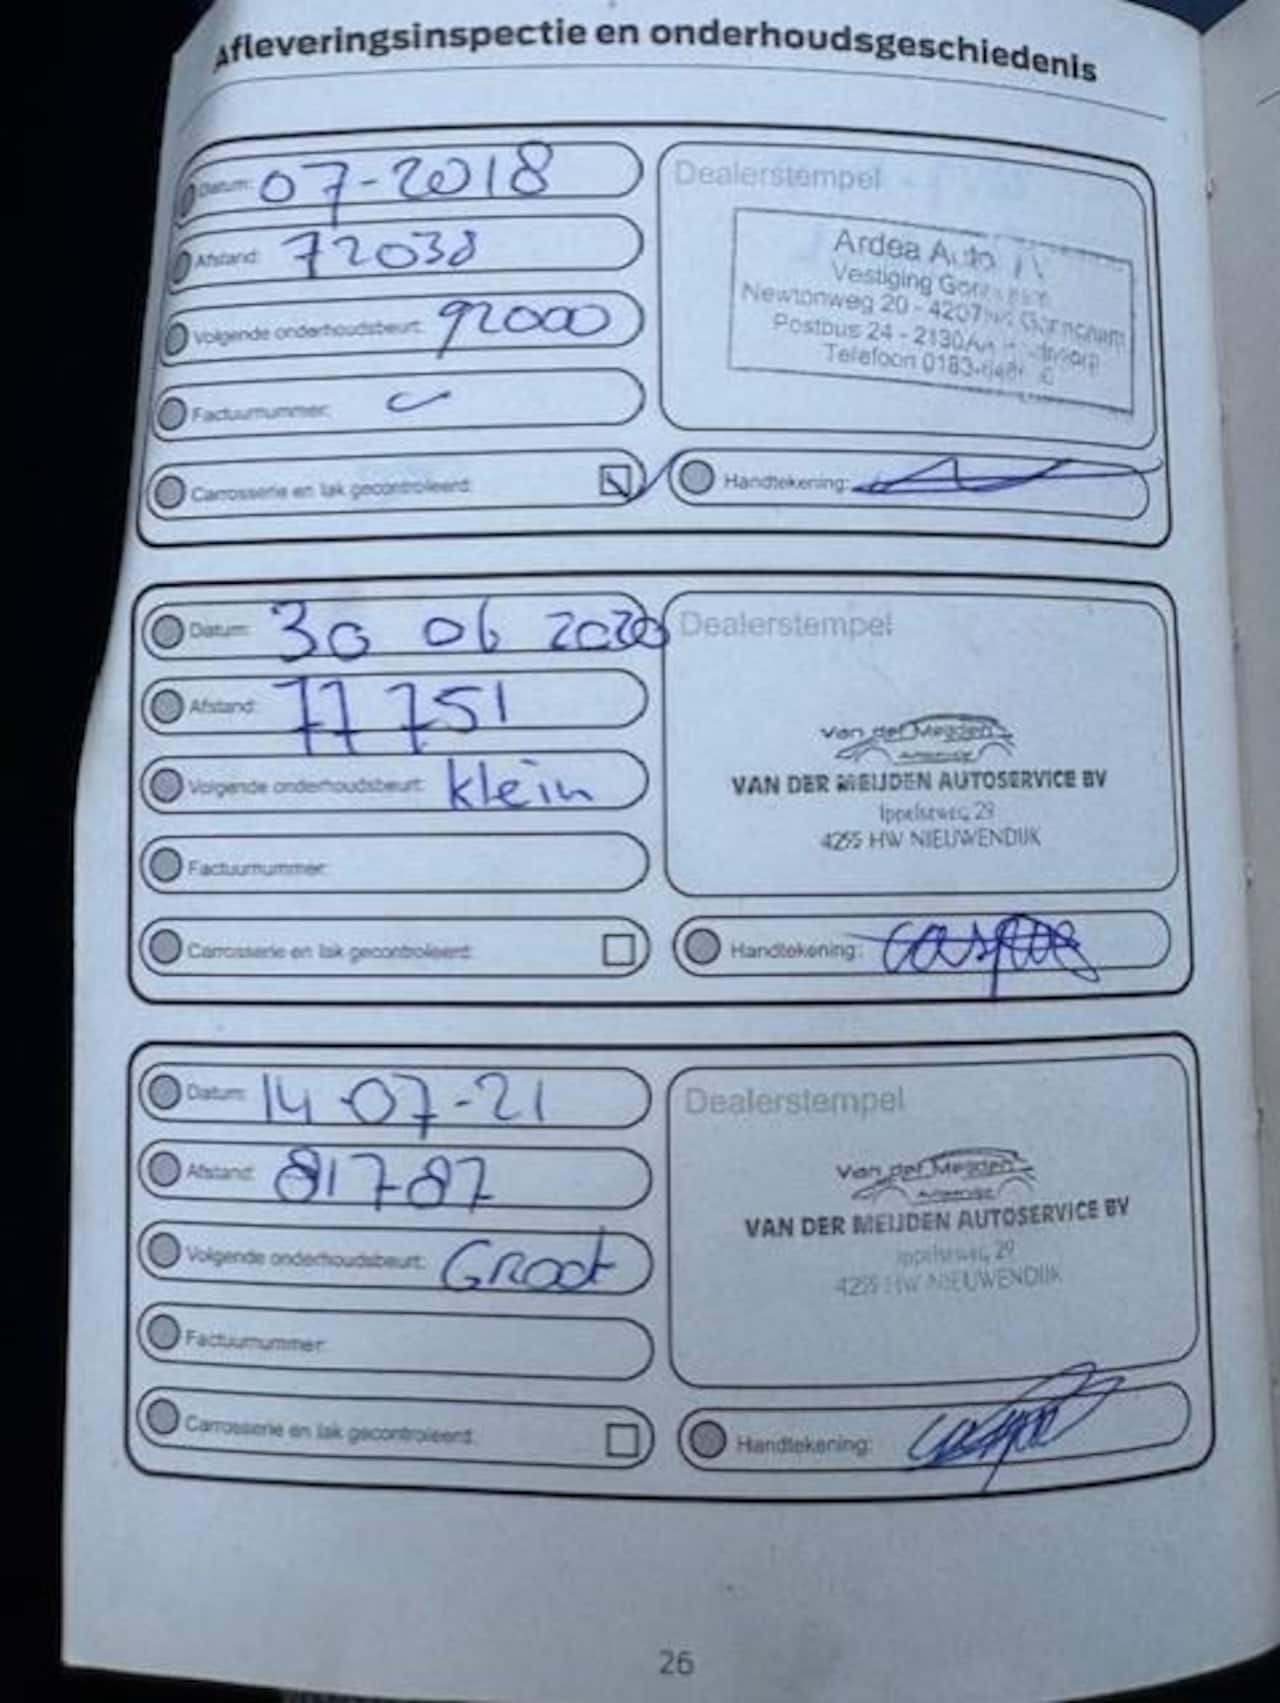 Afleveringsinspectie en onderhoudsgeschiedenis
Datum: 07-2018
Afstand: 72038
Volgende onderhoudsbeurt: 92000
Factuurnummer:
Carrosserie en lak gecontroleerd:
Dealerstempel
Ardea Auto
Vestiging
Newtonweg 20 - 4207
Postbus 24 - 2130
Telefoon 0183-
Handtekening:
Datum: 30 06 2020
Afstand: 77751
Volgende onderhoudsbeurt: klein
Factuurnummer:
Carrosserie en lak gecontroleerd:
Dealerstempel
Van der Meijden
Autoservice
VAN DER MEIJDEN AUTOSERVICE BV
Ippelseweg 29
4255 HW NIEUWENDIJK
Handtekening:
Datum: 14-07-21
Afstand: 81787
Volgende onderhoudsbeurt: Groot
Factuurnummer:
Carrosserie en lak gecontroleerd:
Dealerstempel
Van der Meijden
Autoservice
VAN DER MEIJDEN AUTOSERVICE BV
Ippelseweg 29
4255 HW NIEUWENDIJK
Handtekening:
26